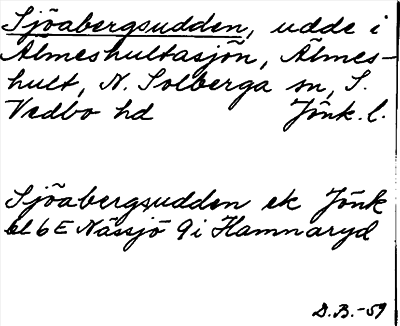 Sjöabergsudden, udde i
Älmeshultasjön, Älmes-
hult, N. Solberga sn, S.
Vedbo hd Jönk. l.
Sjöabergsudden ek Jönk
bl 6E Nässjö 9i Hamnaryd
D.B.-59